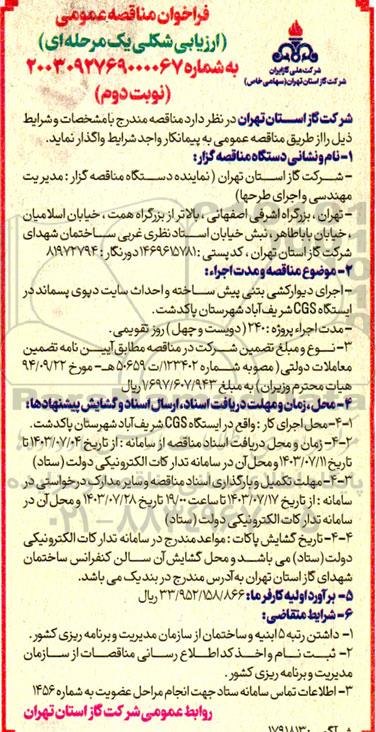 فراخوان مناقصه عمومی
(ارزیابی شکلی یک مرحله ای)
به شماره ۲۰۰۳۰۹۲۷۶۹۰۰۰۰۶۷
(نوبت دوم)
شرکت ملی گاز ایران
شرکت گاز استان تهران (سهامی خاص)
شرکت گاز استان تهران در نظر دارد مناقصه مندرج با مشخصات و شرایط
ذیل را از طریق مناقصه عمومی به پیمانکار واجد شرایط واگذار نماید.
۱- نام و نشانی دستگاه مناقصه گزار:
- شرکت گاز استان تهران ( نماینده دستگاه مناقصه گزار : مدیریت
مهندسی و اجرای طرحها)
- تهران ، بزرگراه اشرفی اصفهانی ، بالاتر از بزرگراه همت ، خیابان اسلامیان
، خیابان باباطاهر ، نبش خیابان استاد نظری غربی ساختمان شهدای
شرکت گاز استان تهران ، کدپستی : ۱۴۶۹۶۱۵۷۸۱ دورنگار : ۸۱۹۷۲۷۹۴
۲- موضوع مناقصه و مدت اجراء:
- اجرای دیوارکشی بتنی پیش ساخته و احداث سایت دپوی پسماند در
ایستگاه CGS شریف آباد شهرستان پاکدشت.
- مدت اجراء پروژه : ۲۴۰ (دویست و چهل) روز تقویمی.
۳- نوع و مبلغ تضمین شرکت در مناقصه مطابق آیین نامه تضمین
معاملات دولتی ( مصوبه شماره ۱۲۳۴۰۲/ت۵۰۶۵۹ هـ - مورخ ۹۴/۰۹/۲۲
هیات محترم وزیران) به مبلغ ۱/۶۹۷/۶۰۷/۹۴۳ ریال
۴- محل ، زمان و مهلت دریافت اسناد، ارسال اسناد و گشایش پیشنهادها:
۴-۱- محل اجرای کار : واقع در ایستگاه CGS شریف آباد شهرستان پاکدشت.
۴-۲- زمان و محل دریافت اسناد مناقصه از سامانه : از تاریخ ۱۴۰۳/۰۷/۰۴ تا
تاریخ ۱۴۰۳/۰۷/۱۱ و محل آن در سامانه تدارکات الکترونیکی دولت (ستاد)
۴-۳- مهلت تکمیل و بارگذاری اسناد مناقصه و سایر مدارک درخواستی در
سامانه : از تاریخ ۱۴۰۳/۰۷/۱۷ تا ساعت ۱۹/۰۰ تاریخ ۱۴۰۳/۰۷/۲۸ و محل آن در
سامانه تدارکات الکترونیکی دولت (ستاد)
۴-۴- تاریخ گشایش پاکات : مواعد مندرج در سامانه تدارکات الکترونیکی
دولت (ستاد) می باشد و محل گشایش آن سالن کنفرانس ساختمان
شهدای گاز استان تهران به آدرس مندرج در بند یک می باشد.
۵- برآورد اولیه کارفرما : ۳۳/۹۵۲/۱۵۸/۸۶۶ ریال
۶- شرایط متقاضی:
۱- داشتن رتبه ۵ ابنیه و ساختمان از سازمان مدیریت و برنامه ریزی کشور .
۲- ثبت نام و اخذ کد اطلاع رسانی مناقصات از سازمان
مدیریت و برنامه ریزی کشور .
۳- اطلاعات تماس سامانه ستاد جهت انجام مراحل عضویت به شماره ۱۴۵۶
روابط عمومی شرکت گاز استان تهران
۱۷۹۱۸۱۳۰